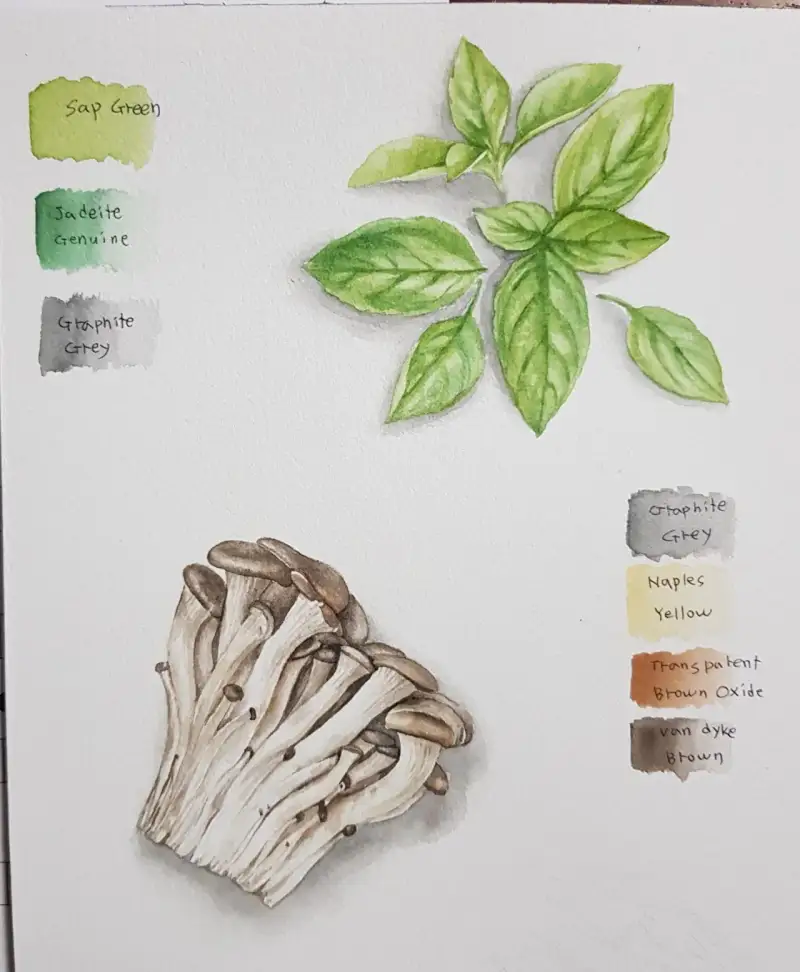 Sap Green
Jadeite
Genuine
Graphite
Grey
Graphite
Grey
Naples
Yellow
Transparent
Brown Oxide
van dyke
Brown